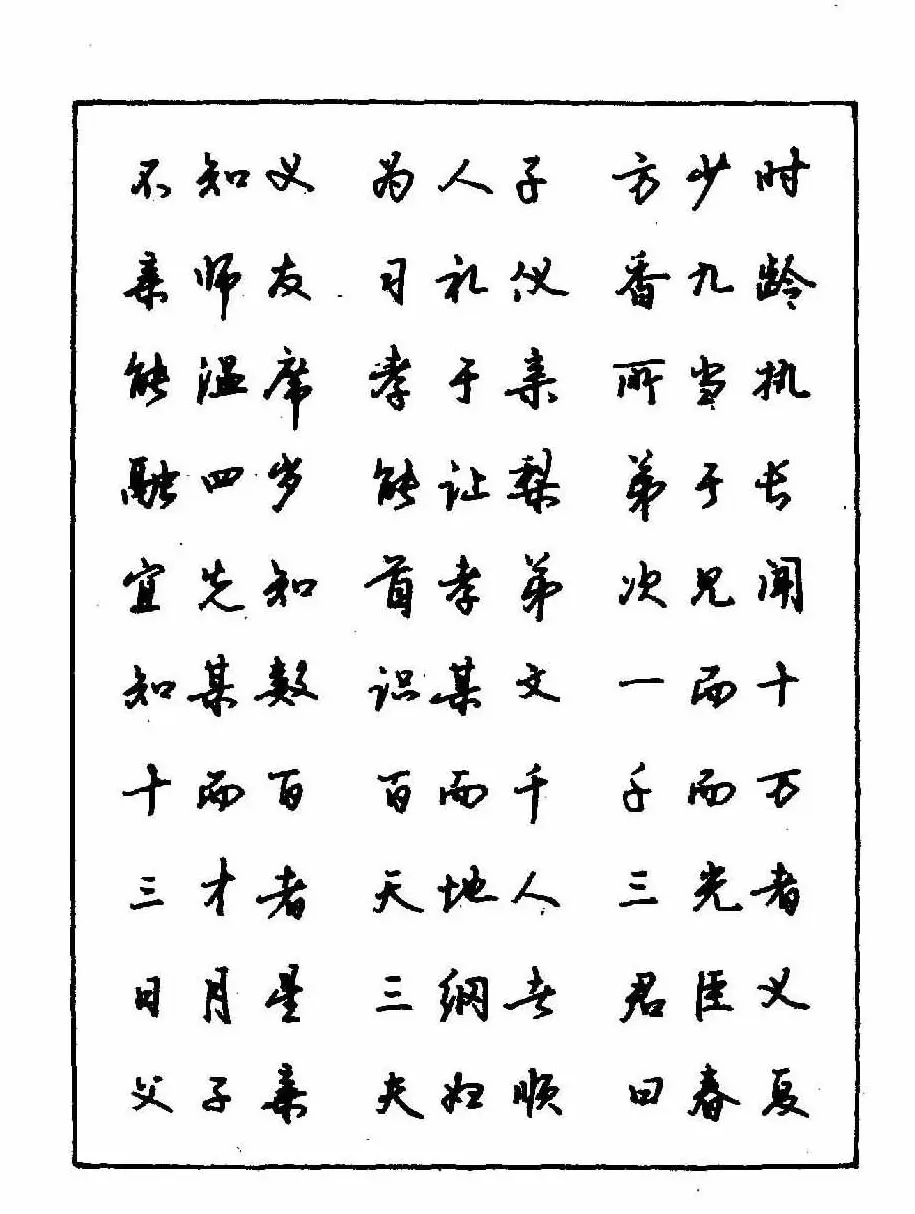 不知义 为人子 方少时
亲师友 习礼仪 香九龄
能温席 孝于亲 所当执
融四岁 能让梨 弟于长
宜先知 首孝弟 次见闻
知某数 识某文 一而十
十而百 百而千 千而万
三才者 天地人 三光者
日月星 三纲者 君臣义
父子亲 夫妇顺 曰春夏